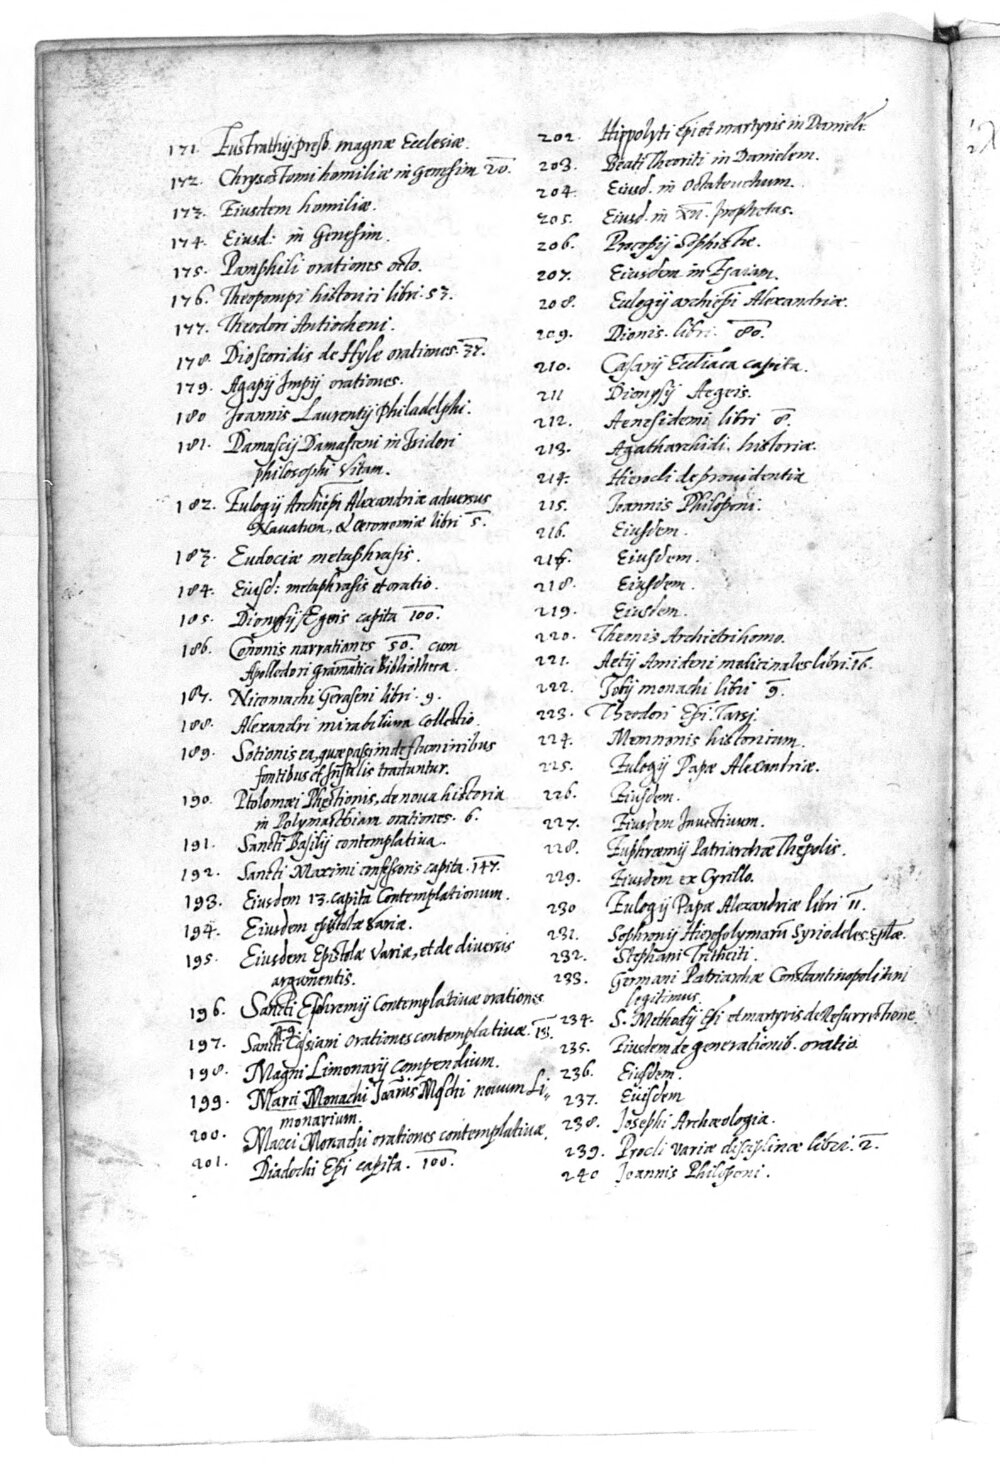 171. Eustrathij presb. magnæ Ecclesiæ.
172. Chrysostomi homiliæ in Genesim 20.
173. Eiusdem homiliæ.
174. Eiusd: in Genesim.
175. Pamphili orationes octo.
176. Theopompi historici libri. 53.
177. Theodori Antiocheni.
178. Dioscoridis de Hyle orationes. 37.
179. Agapij Impij orationes.
180 Joannis Laurentij Philadelphi.
181. Damascij Damasceni in Isidori
philosophi Vitam.
182. Eulogij Archiepi Alexandriæ adversus
Navatum, & œconomiæ libri 5.
183. Eudociæ metaphrasis.
184. Eiusd: metaphrasis et oratio.
185. Dionysij Ægeis capita 100.
186. Cononis narrationes 50. cum
Apollodori grammatici Bibliotheca.
187. Nicomachi Geraseni libri. 9.
188. Alexandri mirabilium collectio.
189. Sotionis ea, quæ passim de fluminibus
fontibus et traduntur.
190. Ptolomæi Phestionis, de nova historia
in Polymathiam orationes. 6.
191. Sancti Basilij contemplativa.
192. Sancti Maximi confessoris capita. 147.
193. Eiusdem 13. capita Contemplationum.
194. Eiusdem epistolæ Variæ.
195. Eiusdem Epistolæ Variæ, et de diversis
argumentis.
196. Sancti Ephremij Contemplativæ orationes
197. Sancti Casiani orationes contemplativæ.
198. Magni Limonarij compendium.
199. Marci Monachi Joanis Moschi novum Li-
monarium.
200. Marci Monachi orationes contemplativæ.
201. Diadochi Epi capita. 100.
202. Hippolyti Epi et martyris in Daniele
203. Beati Theoriti in Danielem.
204. Eiusd. in Octateuchum.
205. Eiusd. in XII. prophetas.
206. Procopij Sophistæ.
207. Eiusdem in Esaiam.
208. Eulogij archiepi Alexandriæ.
209. Dionis. libri. 80.
210. Cæsarij Ecclesiastica capita.
211 Dionysij Aegeis.
212. Aenesidemi libri 8.
213. Agatharchidi. historiæ.
214. Hierocli de providentia
215. Joannis Philoponi.
216. Eiusdem.
217. Eiusdem.
218. Eiusdem.
219. Eiusdem.
220. Theonis Archiatrihomo.
221. Aetij Amideni medicinales libri. 16.
222. Jobij monachi libri 9.
223. Theodori Epi. Tarsj.
224. Memnonis historicum.
225. Eulogij Papæ Alexandriæ.
226. Eiusdem.
227. Eiusdem Invectivum.
228. Euphræmij Patriarchæ Theopolis.
229. Eiusdem ex Cyrillo.
230 Eulogij Papæ Alexandriæ libri 11.
231. Sophronij Hierosolymarū Synodeles Eptæ.
232. Stephani Tritheiti.
233. Germani Patriarchæ Constantinopolitini
legitimus.
234. S. Methodij Epi et martyris de Resurrectione.
235. Eiusdem de generationib. oratio.
236. Eiusdem.
237. Eiusdem
238. Josephi Archæologia.
239. Procli variæ disciplinæ libri. 2.
240 Joannis Philoponi.